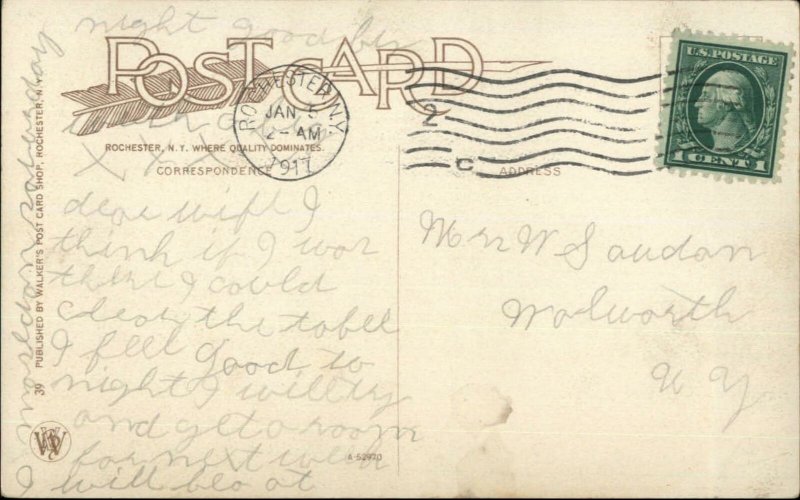 night good bye
POST CARD
ROCHESTER, N.Y. WHERE QUALITY DOMINATES.
CORRESPONDENCE
ADDRESS
ROCHESTER N.Y.
JAN 5
2 - AM
1917
2
C
U.S. POSTAGE
1 CENT 1
xxx
dear wife I
think if I wor
there I could
clear the tabel
I feel good to
night I will try
and get a room
for next week
I will beo at
on saterday
Mrs W Saudan
Wolworth
N Y
39 PUBLISHED BY WALKER'S POST CARD SHOP, ROCHESTER, N.Y.
A-52970